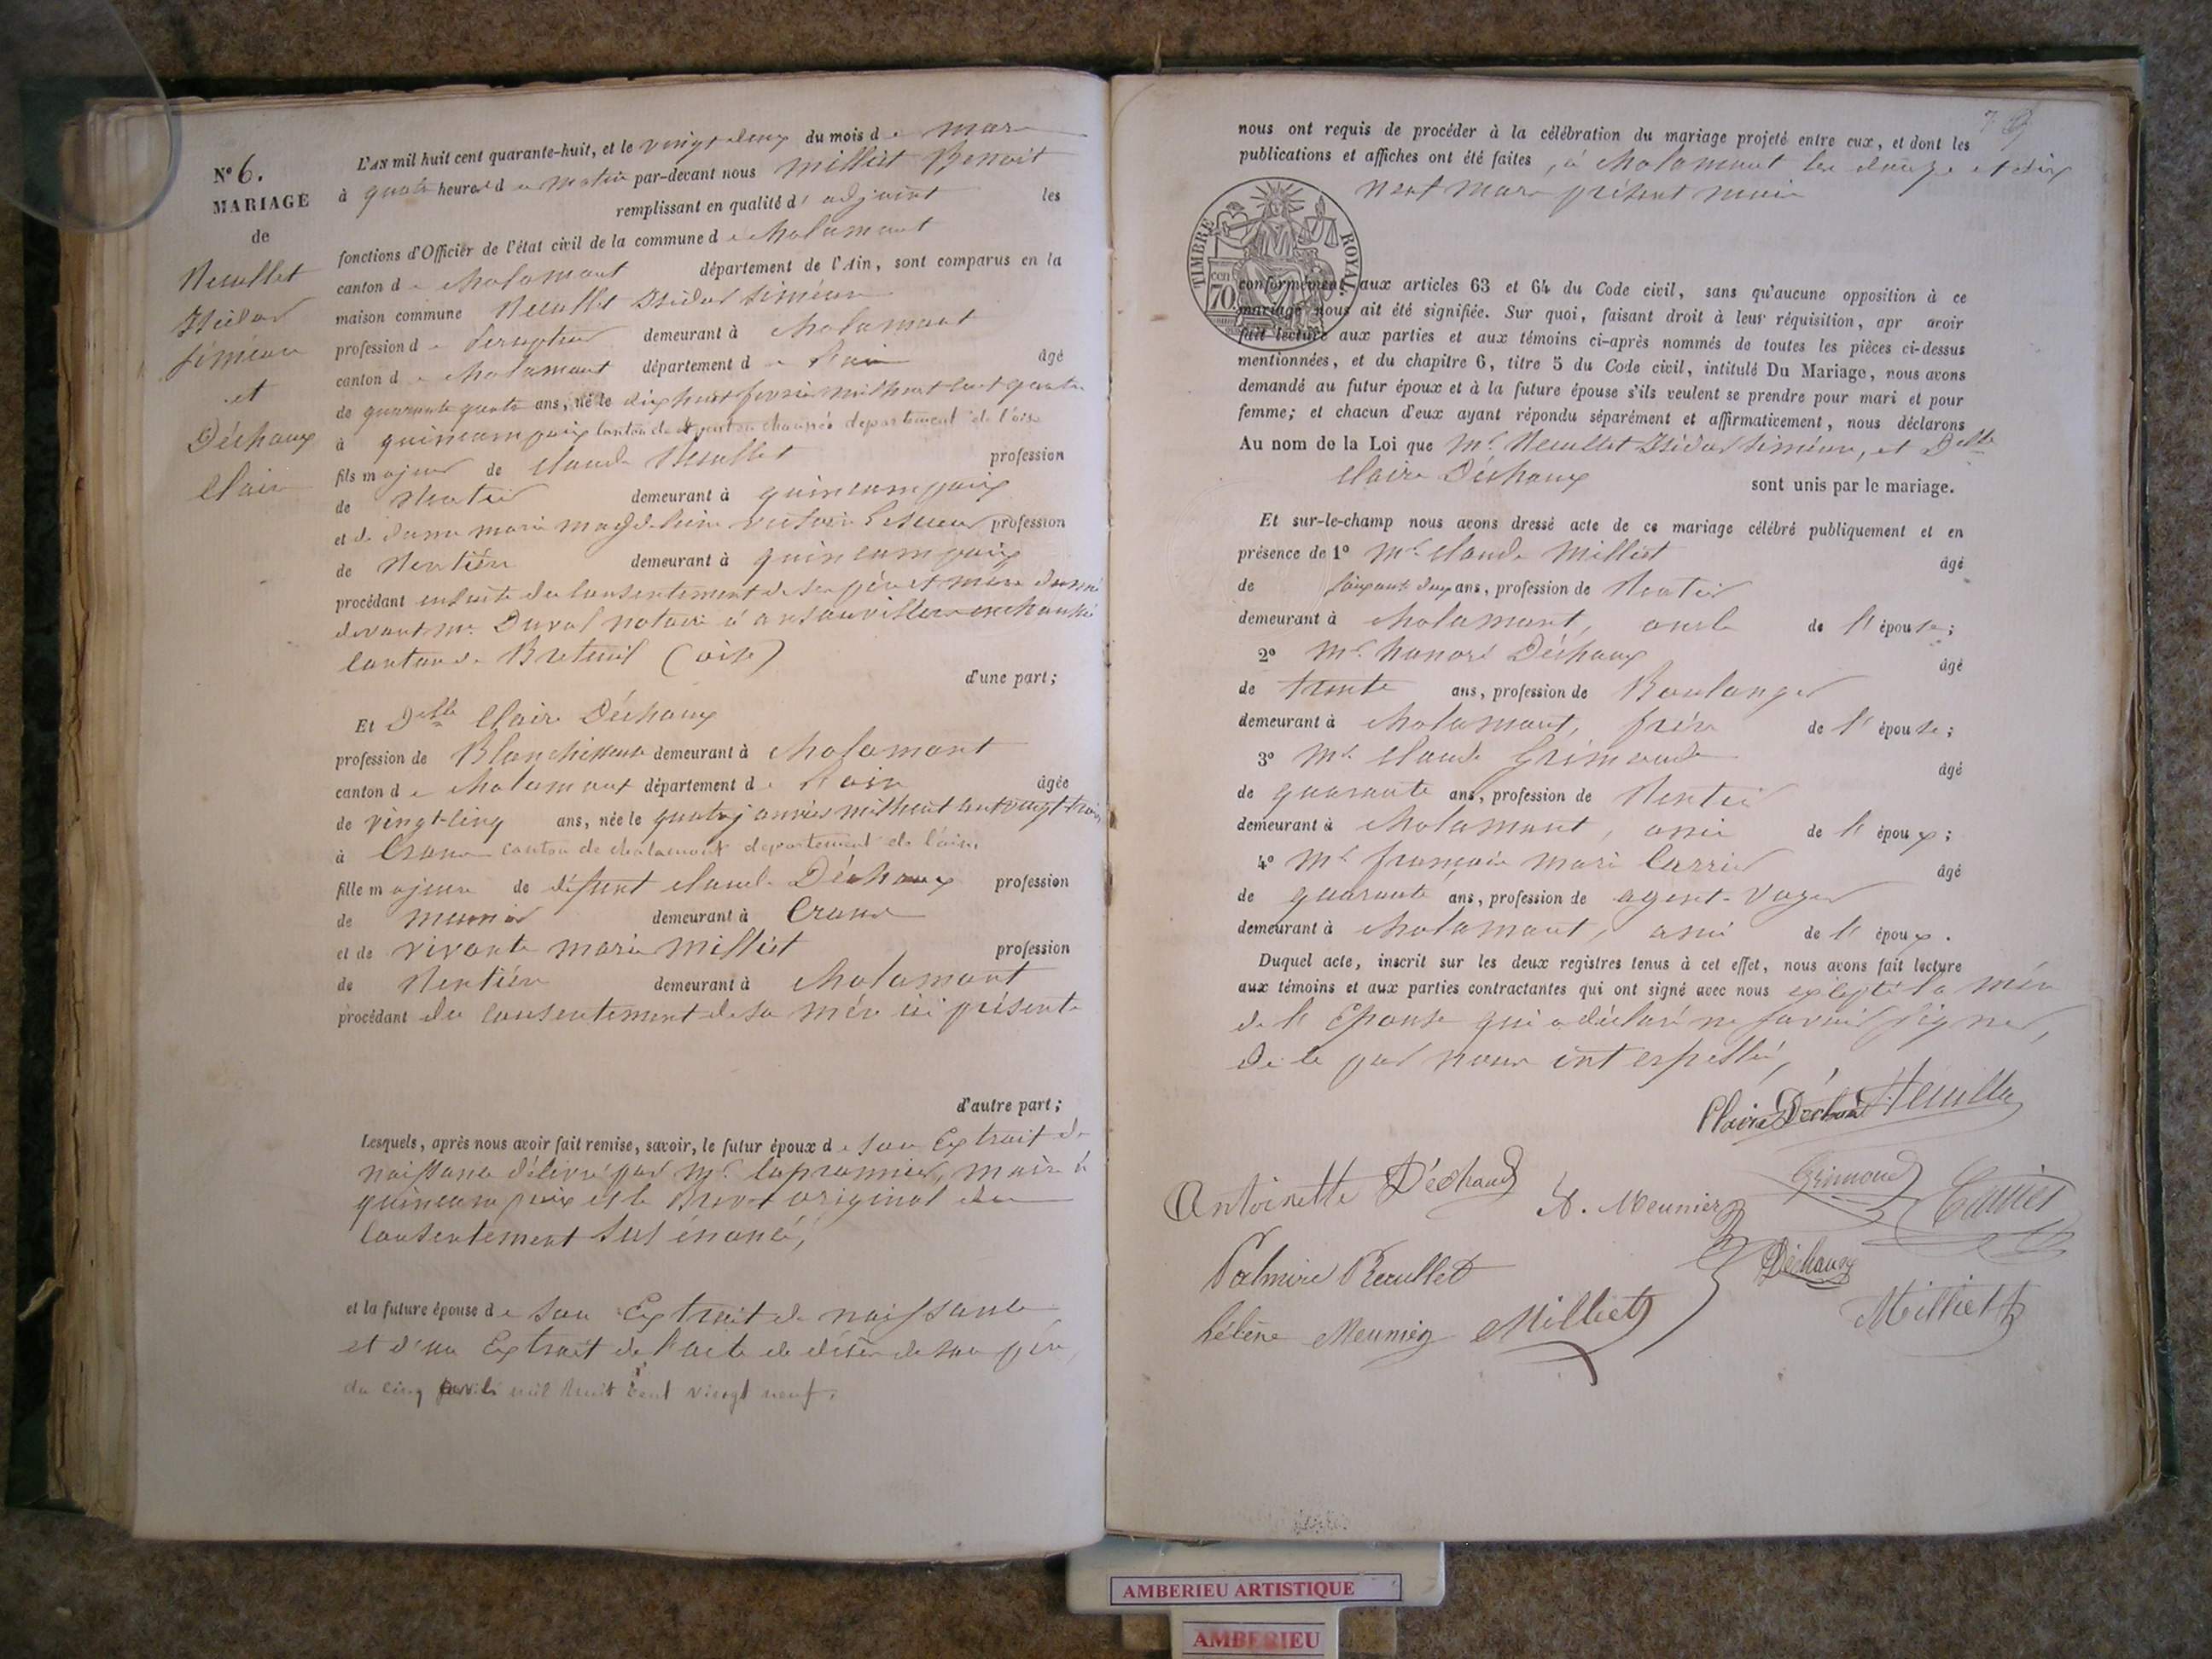 N° 6.
MARIAGE
de
Reullet
Isidor
Siméon
et
Déchaux
Claire
L'AN mil huit cent quarante-huit, et le vingt deux du mois de mars
à quatre heures du matin par-devant nous Milliet Benoit
remplissant en qualité d'adjoint les
fonctions d'Officier de l'état civil de la commune de Chalamont
canton de Chalamont département de l'Ain, sont comparus en la
maison commune Reullet Isidor Siméon
profession de demeurant à Chalamont
canton de Chalamont département de l'ain âgé
de quarante quatre ans, né le dix huit fevrier mil huit cent quatre
à quincampoix canton de departement de l'oise
fils majeur de Claude Reullet profession
de Rentier demeurant à quincampoix
et de dame marie magdeleine victoire Lesueur profession
de Rentière demeurant à quincampoix
procédant ensuite du consentement de ses père et mère donné
devant me. Duval notaire à ansauvillers en chaussée
canton de Breteuil (oise)
d'une part;
Et Delle Claire Déchaux
profession de Blanchisseuse demeurant à Chalamont
canton de Chalamont département de l'ain âgée
de vingt-cinq ans, née le quatre janvier mil huit cent vingt trois
à Crans canton de chalamont departement de l'ain
fille majeure de défunt Claude Déchaux profession
de meunier demeurant à Crans
et de vivante marie Milliet profession
de Rentière demeurant à Chalamont
procédant du consentement de sa mère ici présente
d'autre part;
Lesquels, après nous avoir fait remise, savoir, le futur époux de son Extrait de
naissance délivré par Mr. maire à
quincampoix et le Brevet original du
consentement sus énoncé,
et la future épouse de son Extrait de naissance
et d'un Extrait de l'acte de décès de son père,
du cinq avril mil huit cent vingt neuf.
nous ont requis de procéder à la célébration du mariage projeté entre eux, et dont les
publications et affiches ont été faites, à Chalamont les douze et dix
neuf mars présent mois
TIMBRE ROYAL
cen
70
conformément aux articles 63 et 64 du Code civil, sans qu'aucune opposition à ce
mariage nous ait été signifiée. Sur quoi, faisant droit à leur réquisition, apr avoir
fait lecture aux parties et aux témoins ci-après nommés de toutes les pièces ci-dessus
mentionnées, et du chapitre 6, titre 5 du Code civil, intitulé Du Mariage, nous avons
demandé au futur époux et à la future épouse s'ils veulent se prendre pour mari et pour
femme; et chacun d'eux ayant répondu séparément et affirmativement, nous déclarons
Au nom de la Loi que Mr. Reullet Isidor Siméon, et Delle
Claire Déchaux sont unis par le mariage.
Et sur-le-champ nous avons dressé acte de ce mariage célébré publiquement et en
présence de 1° Mr. Claude Milliet âgé
de soixante deux ans, profession de Rentier
demeurant à Chalamont, oncle de l'épouse;
2° Mr. honoré Déchaux âgé
de trente ans, profession de Boulanger
demeurant à Chalamont, frère de l'épouse;
3° Mr. Claude Grimoud âgé
de quarante ans, profession de Rentier
demeurant à Chalamont, ami de l'époux;
4° Mr. françois marie Carrier âgé
de quarante ans, profession de agent-Voyer
demeurant à Chalamont, ami de l'époux.
Duquel acte, inscrit sur les deux registres tenus à cet effet, nous avons fait lecture
aux témoins et aux parties contractantes qui ont signé avec nous excepté la mère
de l'Epouse qui a déclaré ne savoir signer,
de ce par nous interpellée,
Claire Déchaux Reullet
Antoinette Déchaux A. Meunier Grimoud Carrier
Palmire Reullet Déchaux
hélène Meunier Milliet Milliet
AMBERIEU ARTISTIQUE
AMBERIEU